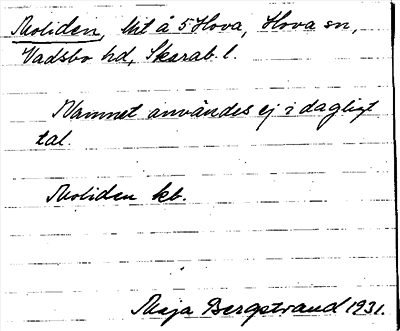 Moliden, lht å 5 Hova, Hova sn,
Vadsbo hd, Skarab. l.
Namnet användes ej i dagligt
tal.
Moliden kb.
Maja Bergstrand 1931.